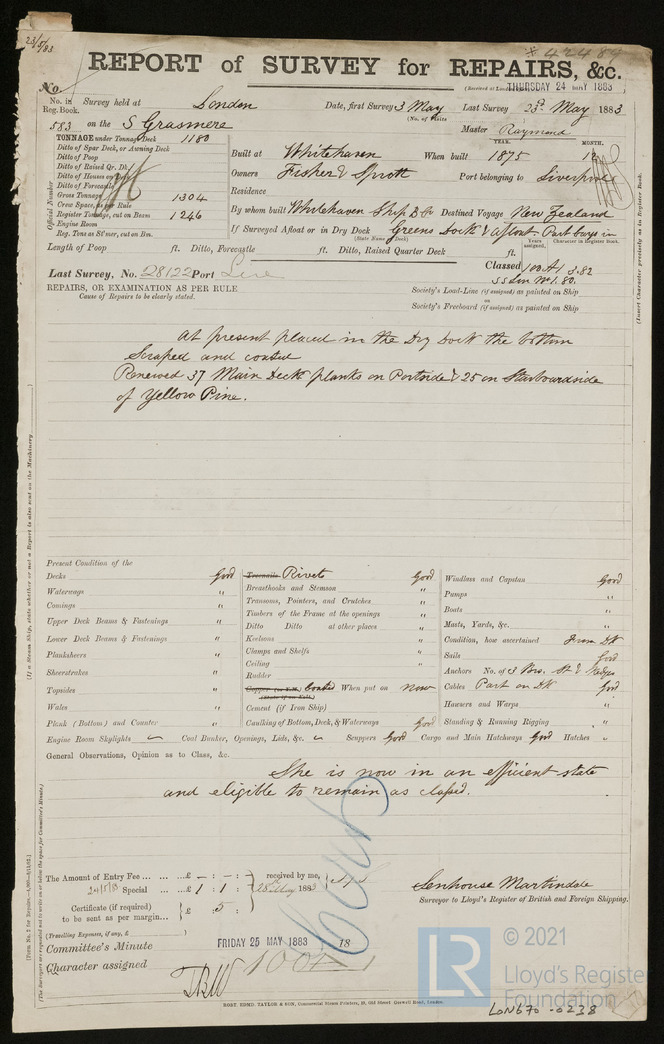 23/5/83
* 42484
REPORT of SURVEY for REPAIRS, &c.
No.
(Received at London THURSDAY 24 MAY 1883
No. in Reg. Book. Survey held at London Date, first Survey 3 May Last Survey 23rd May 1883
(No. of Visits
583 on the S Grasmere Master Raymond
TONNAGE under Tonnage Deck 1180
Ditto of Spar Deck, or Awning Deck
Ditto of Poop
Ditto of Raised Qr. Dk.
Ditto of Houses on
Ditto of Forecastle
Gross Tonnage 1304
Crew Space, as per Rule
Register Tonnage, cut on Beam 1246
Engine Room
Reg. Tons as St'mer, cut on Bm.
Official Number
YEAR. MONTH.
Built at Whitehaven When built 1875 12
Owners Fisher & Sprott Port belonging to Liverpool
Residence
By whom built Whitehaven Ship B Co Destined Voyage New Zealand
If Surveyed Afloat or in Dry Dock Greens Dock & afloat. Part Cargo in
(State Name of Dock)
Years assigned, Character in Register Book.
Length of Poop ft. Ditto, Forecastle ft. Ditto, Raised Quarter Deck ft.
Classed 100 A1 3.82
Last Survey, No. 28122 Port Live
SS Liv No 1. 80.
REPAIRS, OR EXAMINATION AS PER RULE
Cause of Repairs to be clearly stated.
Society's Load-Line (if assigned) as painted on Ship
or
Society's Freeboard (if assigned) as painted on Ship
(Insert Character precisely as in Register Book.
At present placed in the Dry Dock the bottom
Scraped and coated
Renewed 37 Main Deck planks on Portside & 25 on Starboardside
of Yellow Pine.
Present Condition of the
Decks Good
Waterways "
Comings "
Upper Deck Beams & Fastenings "
Lower Deck Beams & Fastenings "
Planksheers "
Sheerstrakes "
Topsides "
Wales "
Plank (Bottom) and Counter "
Treenails Rivets Good
Breasthooks and Stemson "
Transoms, Pointers, and Crutches "
Timbers of the Frame at the openings "
Ditto Ditto at other places "
Keelsons "
Clamps and Shelfs "
Ceiling "
Rudder
Copper (or Y.M.) Coated When put on Now
(State if on Felt.)
Cement (if Iron Ship)
Caulking of Bottom, Deck, & Waterways Good
Windlass and Capstan Good
Pumps "
Boats "
Masts, Yards, &c. "
Condition, how ascertained From Dk
Sails Good
Anchors No. of 3 Brs. St & Kedges
Cables Part on Dk Good
Hawsers and Warps "
Standing & Running Rigging "
Engine Room Skylights Coal Bunker, Openings, Lids, &c. Scuppers Good Cargo and Main Hatchways Good Hatches "
General Observations, Opinion as to Class, &c.
She is now in an efficient state
and eligible to remain as classed.
The Amount of Entry Fee ... ... ... £ - : - : received by me,
24/5/83 Special ... ... £ 1 : 1 : 25th May 1883
Certificate (if required) £ .5 :
to be sent as per margin...
(Travelling Expenses, if any, £ )
Senhouse Martindale
Surveyor to Lloyd's Register of British and Foreign Shipping.
Committee's Minute FRIDAY 25 MAY 1883 18
Character assigned 100A1
ROBT. EDMD. TAYLOR & SON, Commercial Steam Printers, 19, Old Street Goswell Road, London.
(If a Steam Ship, state whether or not a Report is also sent on the Machinery
(The Surveyors are requested not to write on or below the space for Committee's Minute.)
LR
© 2021
Lloyd's Register
Foundation
LON670-0238